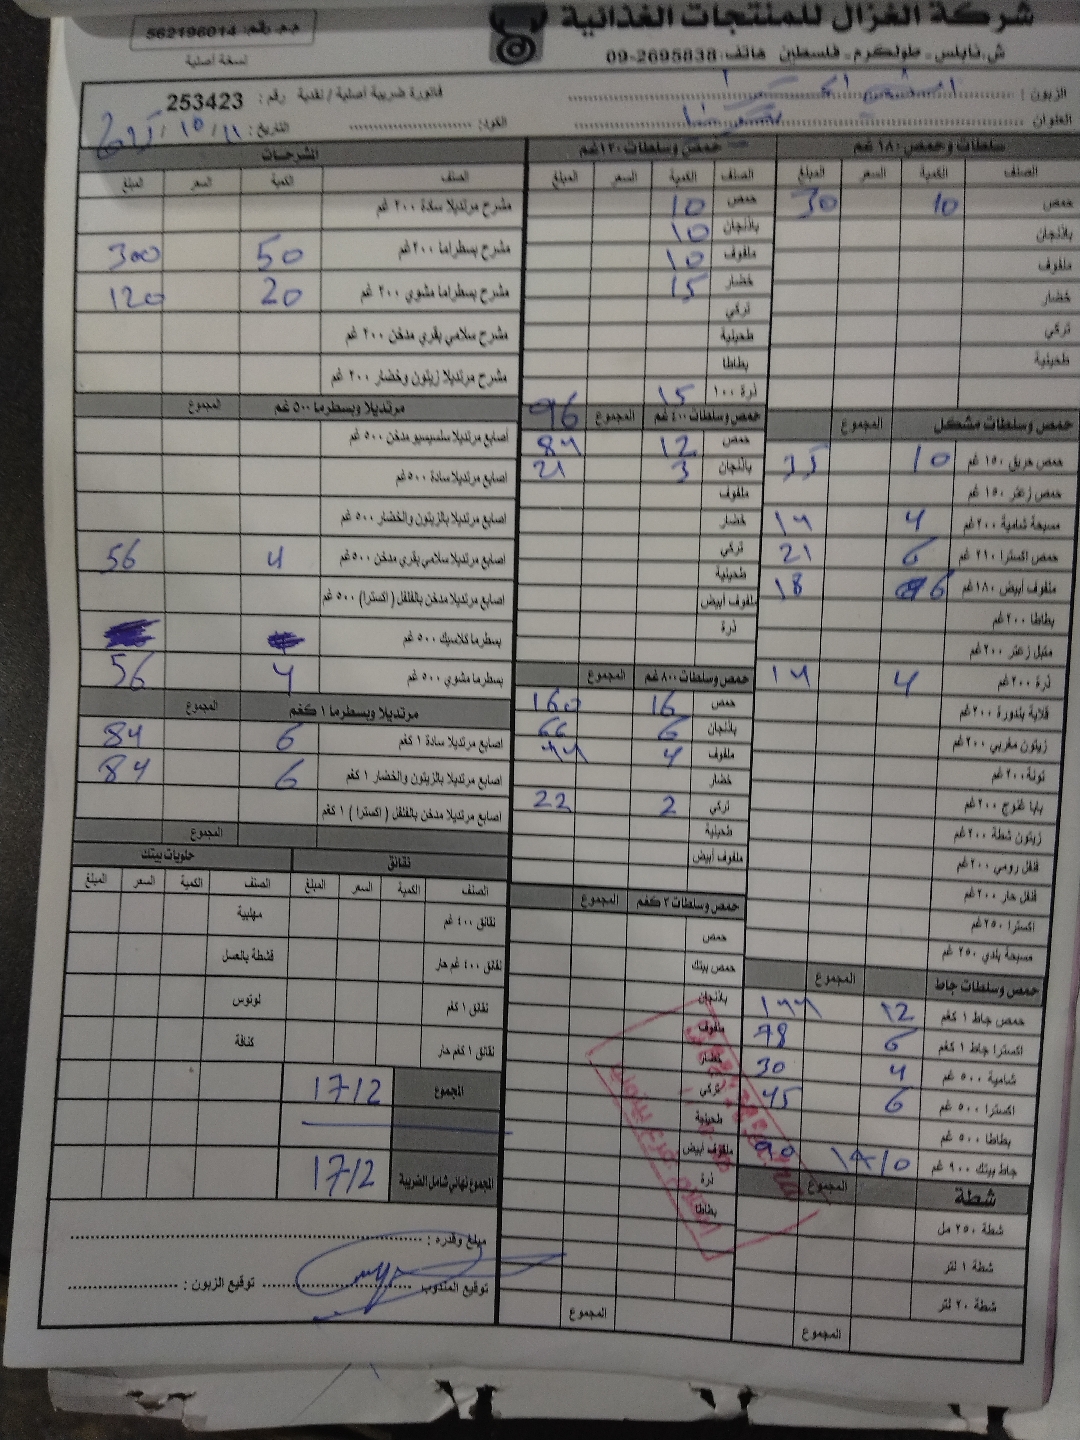 شركة الغزال للمنتجات الغذائية
م.م رقم: 562196014
ش.نابلس - طولكرم - فلسطين هاتف: 09-2695838
نسخة أصلية
الزبون :
فاتورة ضريبية أصلية / نقدية رقم: 253423
العنوان :
الكود:
التاريخ: 11/10/
سلطات وحمص ١٨٠ غم
الصنف الكمية السعر المبلغ
حمص 10 30
باذنجان
ملفوف
خضار
تركي
طحينية
حمص وسلطات مشكل المجموع
حمص حريق ١٥٠ غم 10 35
حمص زعتر ١٥٠ غم
مسبحة شامية ٢٠٠ غم 4 14
حمص اكسترا ٢١٠ غم 6 21
ملفوف أبيض ١٨٠ غم 6 18
بطاطا ٢٠٠ غم
متبل زعتر ٢٠٠ غم
ذرة ٢٠٠ غم 4 14
قلاية بندورة ٢٠٠ غم
زيتون مغربي ٢٠٠ غم
تونة ٢٠٠ غم
بابا غنوج ٢٠٠ غم
زيتون شطة ٢٠٠ غم
فلفل رومي ٢٠٠ غم
فلفل حار ٢٠٠ غم
اكسترا ٢٥٠ غم
مسبحة بلدي ٢٥٠ غم
حمص وسلطات جاط المجموع
حمص جاط ١ كغم 12 144
اكسترا جاط ١ كغم 6 78
شامية ٥٠٠ غم 4 30
اكسترا ٥٠٠ غم 6 45
بطاطا ٥٠٠ غم
جاط بيتك ٩٠٠ غم 10 90
شطة المجموع
شطة ٢٥٠ مل
شطة ١ لتر
شطة ٢٠ لتر
المجموع
حمص وسلطات ١٢٠ غم
الصنف الكمية السعر المبلغ
حمص 10
باذنجان 10
ملفوف 10
خضار 15
تركي
طحينية
بطاطا
ذرة ١٠٠ 15
حمص وسلطات ٤٠٠ غم المجموع 96
حمص 12 84
باذنجان 3 21
ملفوف
خضار
تركي
طحينية
ملفوف أبيض
ذرة
حمص وسلطات ٨٠٠ غم المجموع
حمص 16 160
باذنجان 6 66
ملفوف 4 44
خضار
تركي 2 22
طحينية
ملفوف أبيض
حمص وسلطات ٣ كغم المجموع
حمص
حمص بيتك
باذنجان
ملفوف
خضار
تركي
طحينية
ملفوف أبيض
ذرة
بطاطا
المجموع
المشرحات
الصنف الكمية السعر المبلغ
مشرح مرتديلا سادة ٢٠٠ غم
مشرح بسطراما ٢٠٠ غم 50 300
مشرح بسطراما مشوي ٢٠٠ غم 20 120
مشرح سلامي بقري مدخن ٢٠٠ غم
مشرح مرتديلا زيتون وخضار ٢٠٠ غم
مرتديلا وبسطرما ٥٠٠ غم المجموع
أصابع مرتديلا سلسيسيو مدخن ٥٠٠ غم
اصابع مرتديلا سادة ٥٠٠ غم
اصابع مرتديلا بالزيتون والخضار ٥٠٠ غم
اصابع مرتديلا سلامي بقري مدخن ٥٠٠ غم 4 56
اصابع مرتديلا مدخن بالفلفل (اكسترا) ٥٠٠ غم
بسطرما كلاسيك ٥٠٠ غم
بسطرما مشوي ٥٠٠ غم 4 56
مرتديلا وبسطرما ١ كغم المجموع
اصابع مرتديلا سادة ١ كغم 6 84
اصابع مرتديلا بالزيتون والخضار ١ كغم 6 84
اصابع مرتديلا مدخن بالفلفل (اكسترا) ١ كغم
المجموع
نقانق
الصنف الكمية السعر المبلغ
نقانق ٤٠٠ غم
نقانق ٤٠٠ غم حار
نقانق ١ كغم
نقانق ١ كغم حار
حلويات بيتك
الصنف الكمية السعر المبلغ
مهلبية
قشطة بالعسل
لوتوس
كنافة
المجموع 1712
المجموع نهائي شامل الضريبة 1712
مبلغ وقدره :
توقيع المندوب توقيع الزبون :